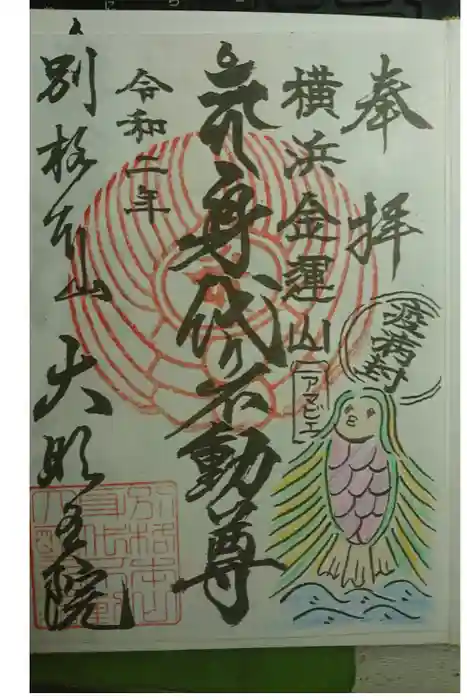 奉拝
疫病封
アマビエ
横浜金運山
元身代り不動尊
令和二年
別格本山 大明王院